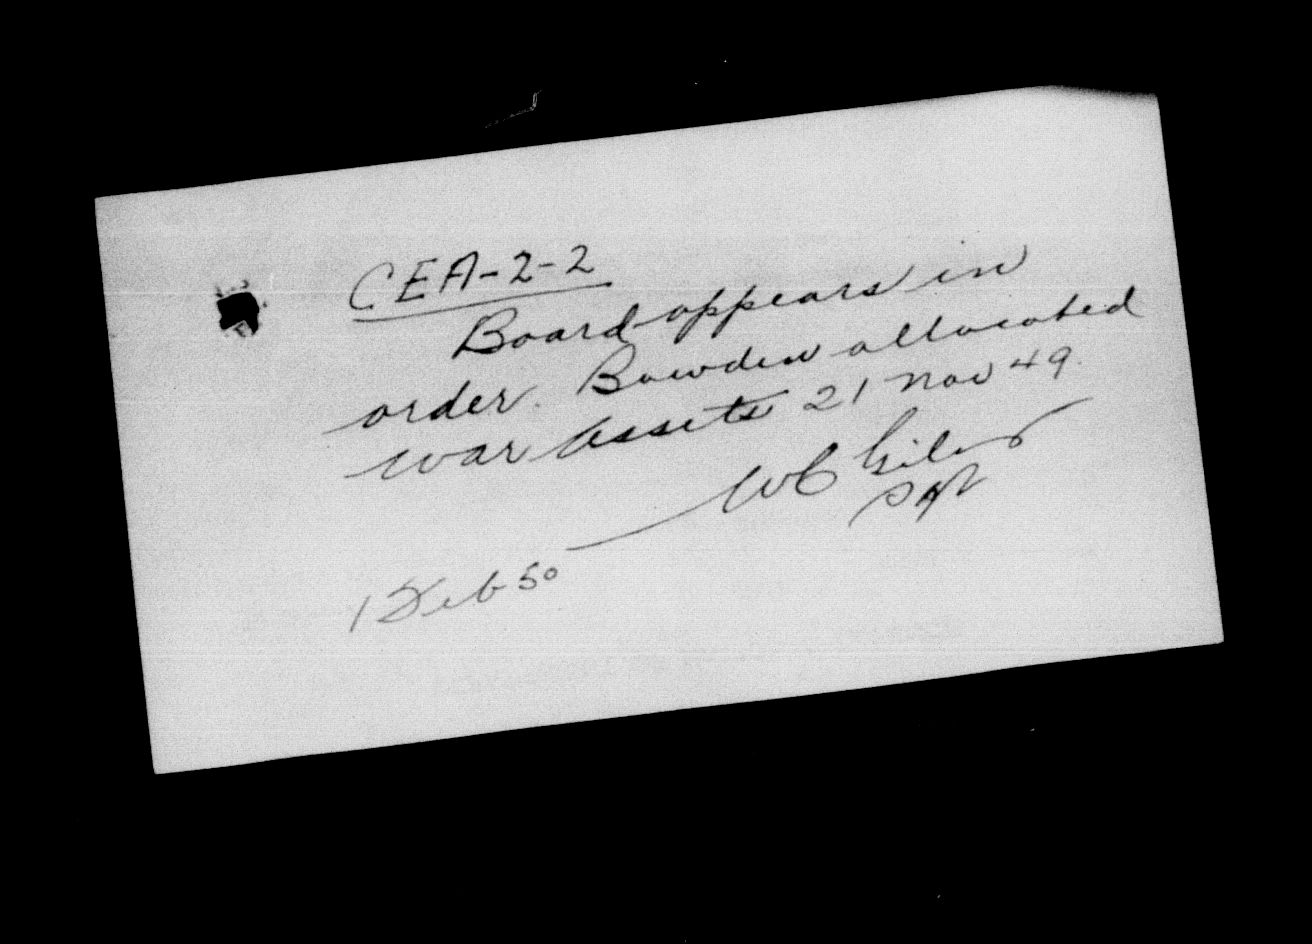 CEA-2-2
Board appears in
order. Bowden allocated
war assets 21 Nov 49.
WC
1 Feb 50